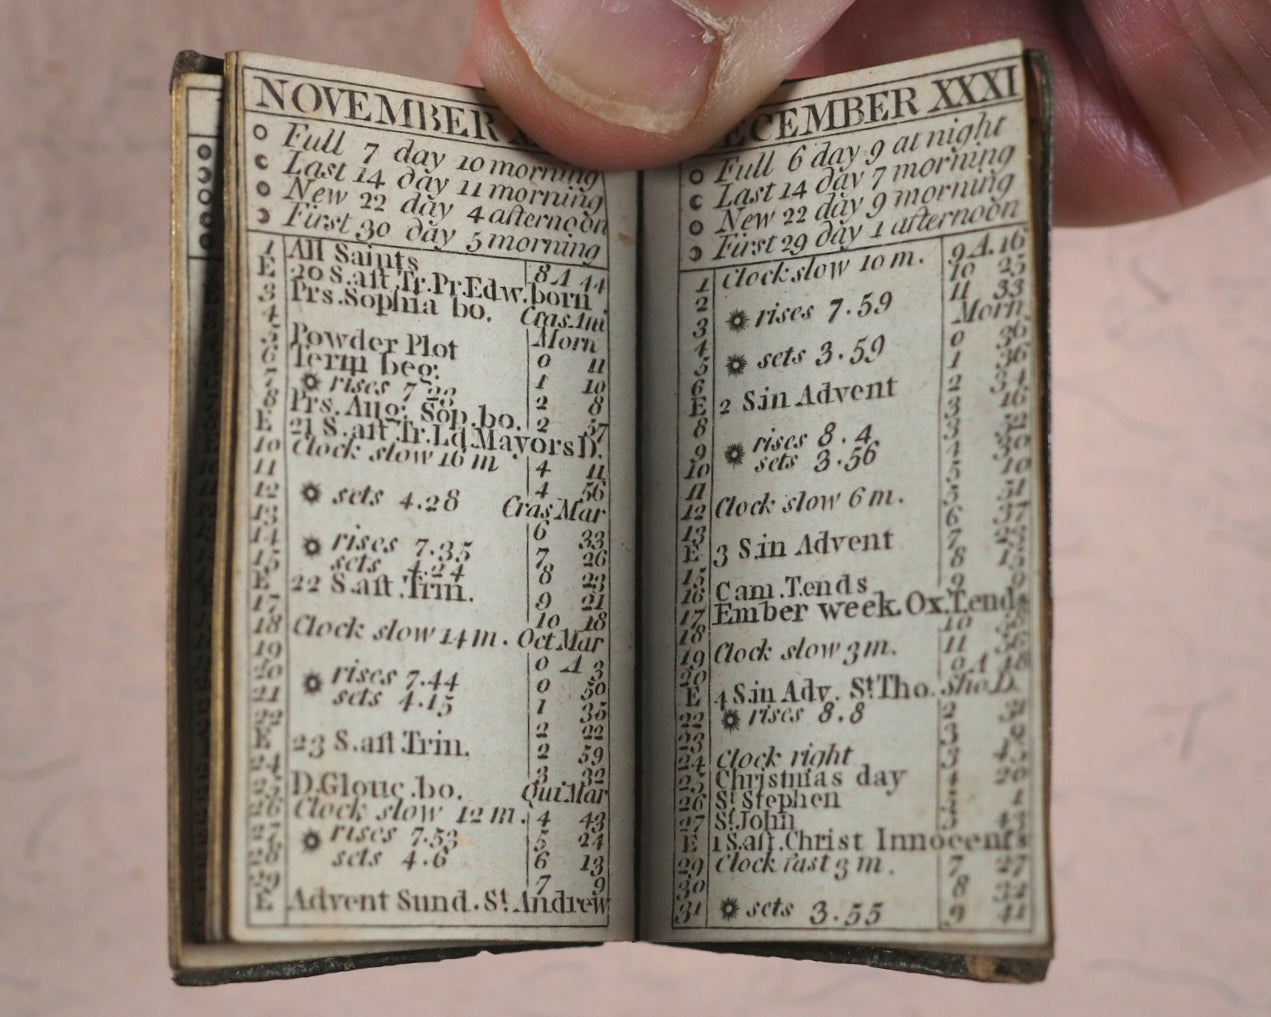 NOVEMBER
Full 7 day 10 morning
Last 14 day 11 morning
New 22 day 4 afternoon
First 30 day 5 morning
1 All Saints 8A 44
E 20 S.aft.Tr.Pr.Edw.born
3 Prs.Sophia bo. Cras.Ani
4 Morn
5 Powder Plot 0 11
6 Term beg: 1 10
7 rises 7 2 8
8 Prs.Aug: Sop.bo. 2 57
E 21 S.aft.Tr.Ld.Mayors D.
10 Clock slow 16 m 4 11
11 4 56
12 sets 4.28 Cras Mar
13 6 33
14 rises 7.35 7 26
15 sets 4.24 8 23
E 22 S.aft.Trin. 9 21
17 10 18
18 Clock slow 14 m. Oct Mar
19 0 A 3
20 rises 7.44 0 50
21 sets 4.15 1 35
22 2 22
E 23 S.aft.Trin. 2 59
24 3 32
25 D.Glouc.bo. Qui.Mar
26 Clock slow 12 m. 4 43
27 rises 7.53 5 24
28 sets 4.6 6 13
29 7 9
E Advent Sund. St. Andrew
DECEMBER XXXI
Full 6 day 9 at night
Last 14 day 7 morning
New 22 day 9 morning
First 29 day 1 afternoon
1 Clock slow 10 m. 9 A.16
2 10 25
3 rises 7.59 11 33
4 Morn.
5 sets 3.59 0 36
6 1 36
E 2 S.in Advent 2 34
8 3 16
9 rises 8.4 3 52
10 sets 3.56 4 30
11 5 10
12 Clock slow 6 m. 5 51
13 6 37
E 3 S.in Advent 7 23
15 8 15
16 Cam.T.ends 9 9
17 Ember week.Ox.T.ends
18 10
19 Clock slow 3 m. 11 56
20 0 A 48
E 4 S.in Adv. St Tho. Sho.D.
22 rises 8.8 2 31
23 3 9
24 Clock right 3 43
25 Christmas day 4 20
26 St Stephen 5 1
27 St.John 5 43
E 1 S.aft.Christ Innocents
29 Clock fast 3 m. 7 27
30 8 32
31 sets 3.55 9 41